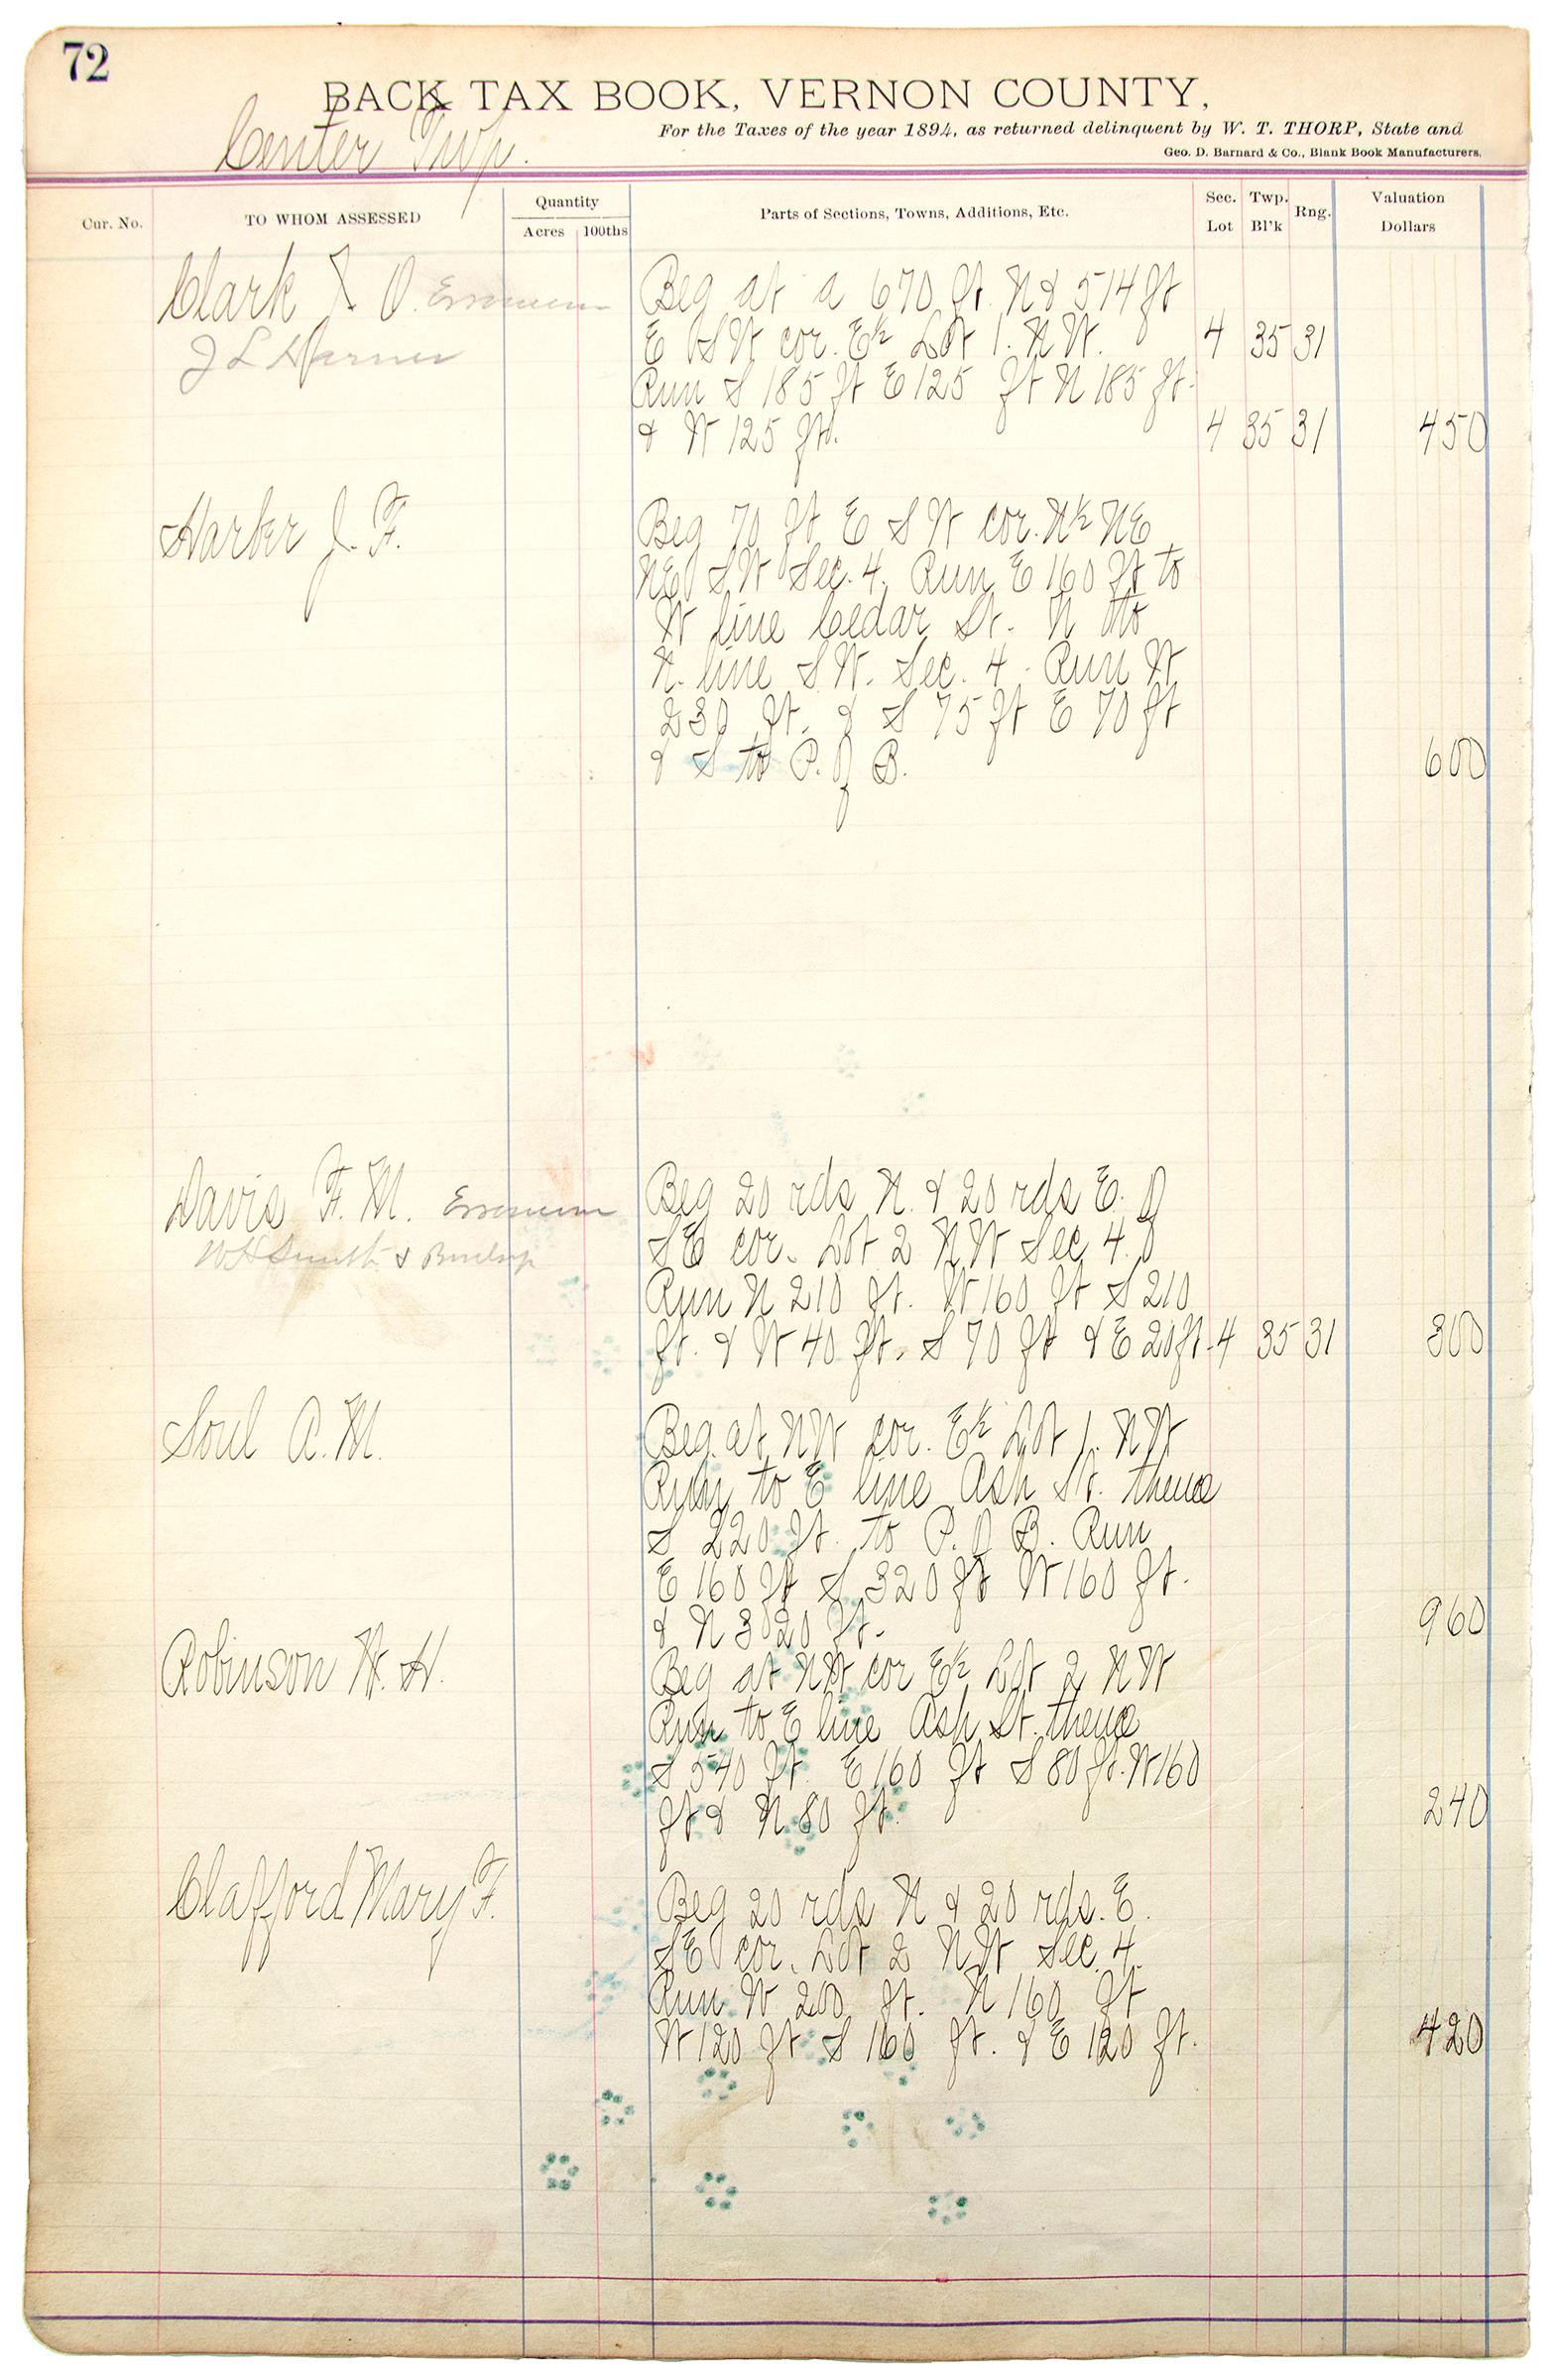 72
BACK TAX BOOK, VERNON COUNTY,
Center Twp.
For the Taxes of the year 1894, as returned delinquent by W. T. THORP, State and
Geo. D. Barnard & Co., Blank Book Manufacturers,
Cur. No. TO WHOM ASSESSED Quantity Acres 100ths Parts of Sections, Towns, Additions, Etc. Sec. Lot Twp. Bl'k Rng. Valuation Dollars
Clark O. Beg at a 670 ft. N & 514 ft
J L E SW cor. E½ Lot 1. N W. 4 35 31
Run S 185 ft E 125 ft N 185 ft.
& W 125 ft. 4 35 31 450
Harker J. F. Beg 70 ft E S W cor. N½ NE
NE S W Sec. 4. Run E 160 ft to
W line Cedar St. N to
N. line S W. Sec. 4. Run W
230 ft. & S 75 ft E 70 ft
& S to P. of B. 600
Davis F. M. Beg 20 rds N. & 20 rds E. of
W H Smith & SE cor. Lot 2 N W Sec 4.
Run N 210 ft. W 160 ft S 210
ft. & W 40 ft. S 70 ft & E 20 ft. 4 35 31 300
Soul A. M. Beg. at N W cor. E½ Lot 1. N W
Run to E line Ash St. thence
S 220 ft. to P. of B. Run
E 160 ft S 320 ft W 160 ft.
& N 320 ft. 960
Robinson W. H. Beg at N W cor E½ Lot 2 N W
Run to E line Ash St. thence
S 540 ft. E 160 ft S 80 ft. W 160
ft & N 80 ft. 240
Clafford Mary F. Beg 20 rds N & 20 rds. E.
SE cor. Lot 2 N W Sec. 4.
Run W 200 ft. N 160 ft
W 120 ft S 160 ft. & E 120 ft. 420